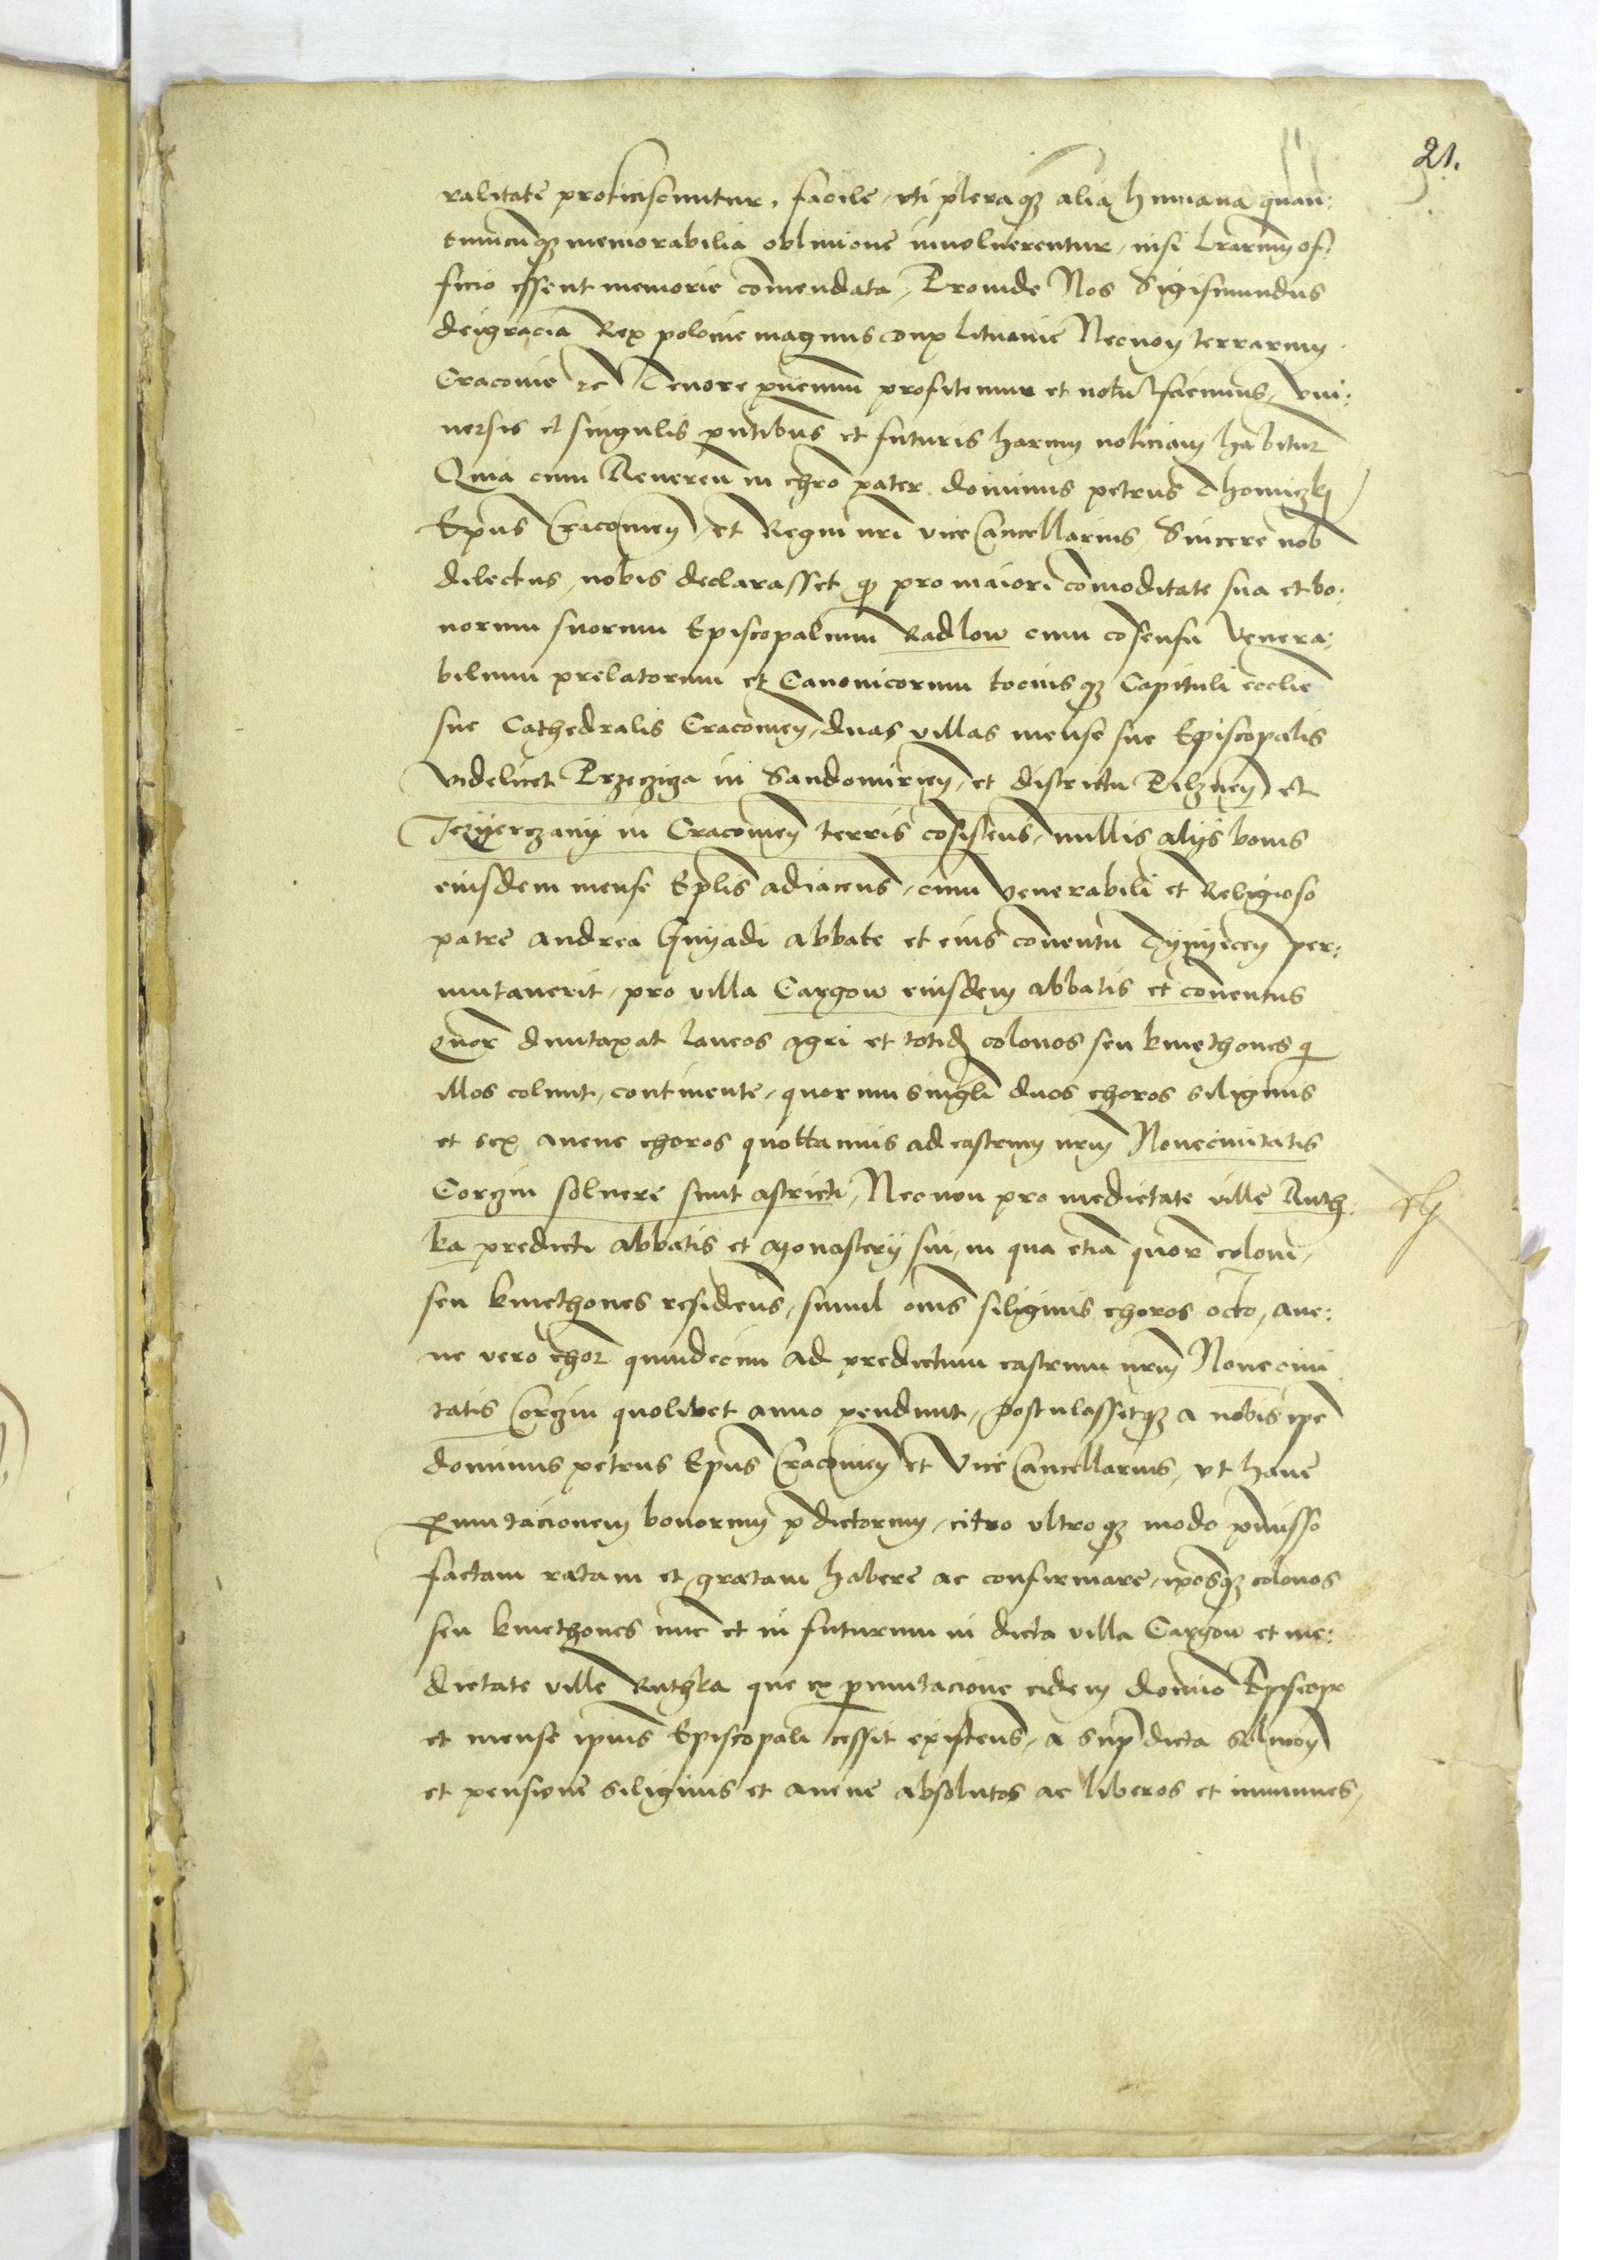 21.
ralitate proficiscuntur, facile, vti pleraq3 alia humana quan:
tumcunq3 memorabilia obliuione inuoluerentur, nisi lrarum of:
ficio essent memorie comendata, Proinde Nos Sigismundus
dei gracia Rex polonie magnus dux Lituanie Necnon terrarum
Cracouie etc Tenore pntium profitemur et notu facimus, vni:
uersis et singulis pntibus et futuris harum noticiam habitur
Quia cum Reueren in chro pater dominus petrus Thomiczkj
Epus Cracouien, et Regni nri vicecancellarius, Sincere nob
dilectus, nobis declarasset q pro maiori comoditate sua et bo:
norum suorum Episcopalium Radlow cum cosensu Venera:
bilium prelatorum et Canonicorum tociusq3 Capituli ecclie
sue Cathedralis Cracouien, duas villas mense sue Episcopalis
videlicet Przecziga in Sandomirien, et districtu Pilznen et
Jezyerczany in Cracouien terris cosistens, nullis alijs bonis
eiusdem mense Eplis adiacens, cum venerabili et Religioso
patre andrea Gnyadi abbate et eius conuentu Tynyecen per:
mutauerit, pro villa Cargow eiusdem abbatis et conuentus
quor duntaxat laneos agri et totid colonos seu kmethones q
illos colunt, continente, quorum singli duos choros siliginis
et sex auene choros quottannis ad castrum nrum Nouecinitatis
Corzin soluere sunt astricti, Necnon pro medietate ville Ruth
ka predicti abbatis et Monasterij sui, in qua etia quor coloni,
seu kmethones residens, simul omes siliginis choros octo, aue:
ne vero chor quindecim ad predictum castrum nrum Noueciui
tatis Corzin quolibet anno pendunt, Postulassetq3 a nobis ipe
dominus petrus Epus Cracouien et Vicecancellarius, vt hanc
pmutacionem bonorum pdictorum, citro vltroq3 modo pmisso
factam ratam et gratam habere ac confirmare, iposq3 colonos
seu kmethones nuc et in futurum in dicta villa Cargow et me:
dietate ville Ruthka que ex pmutacione eidem domino Episcopo
et mense ipius Episcopali cessit existens, a supdicta soluon
et pensione siliginis et auene absolutos ac liberos et immunes,